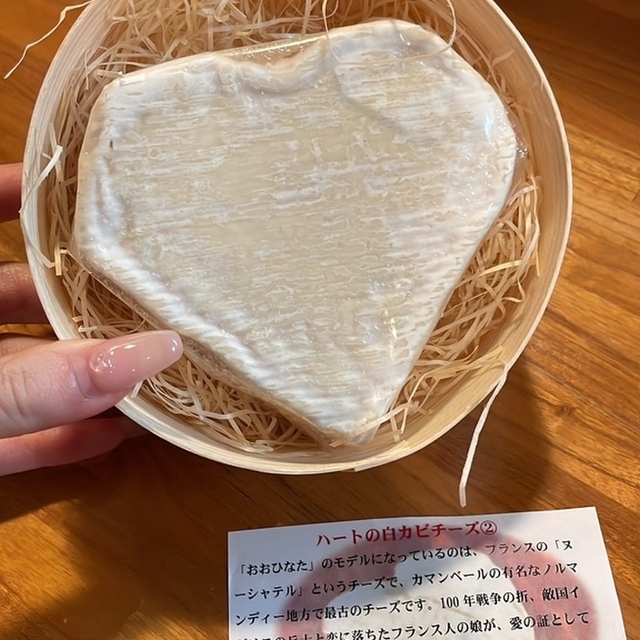 ハートの白カビチーズ②
「おおひなた」のモデルになっているのは、フランスの「ヌ
ーシャテル」というチーズで、カマンベールの有名なノルマ
ンディー地方で最古のチーズです。100年戦争の折、敵国イ
ギリスの兵士と恋に落ちたフランス人の娘が、愛の証として